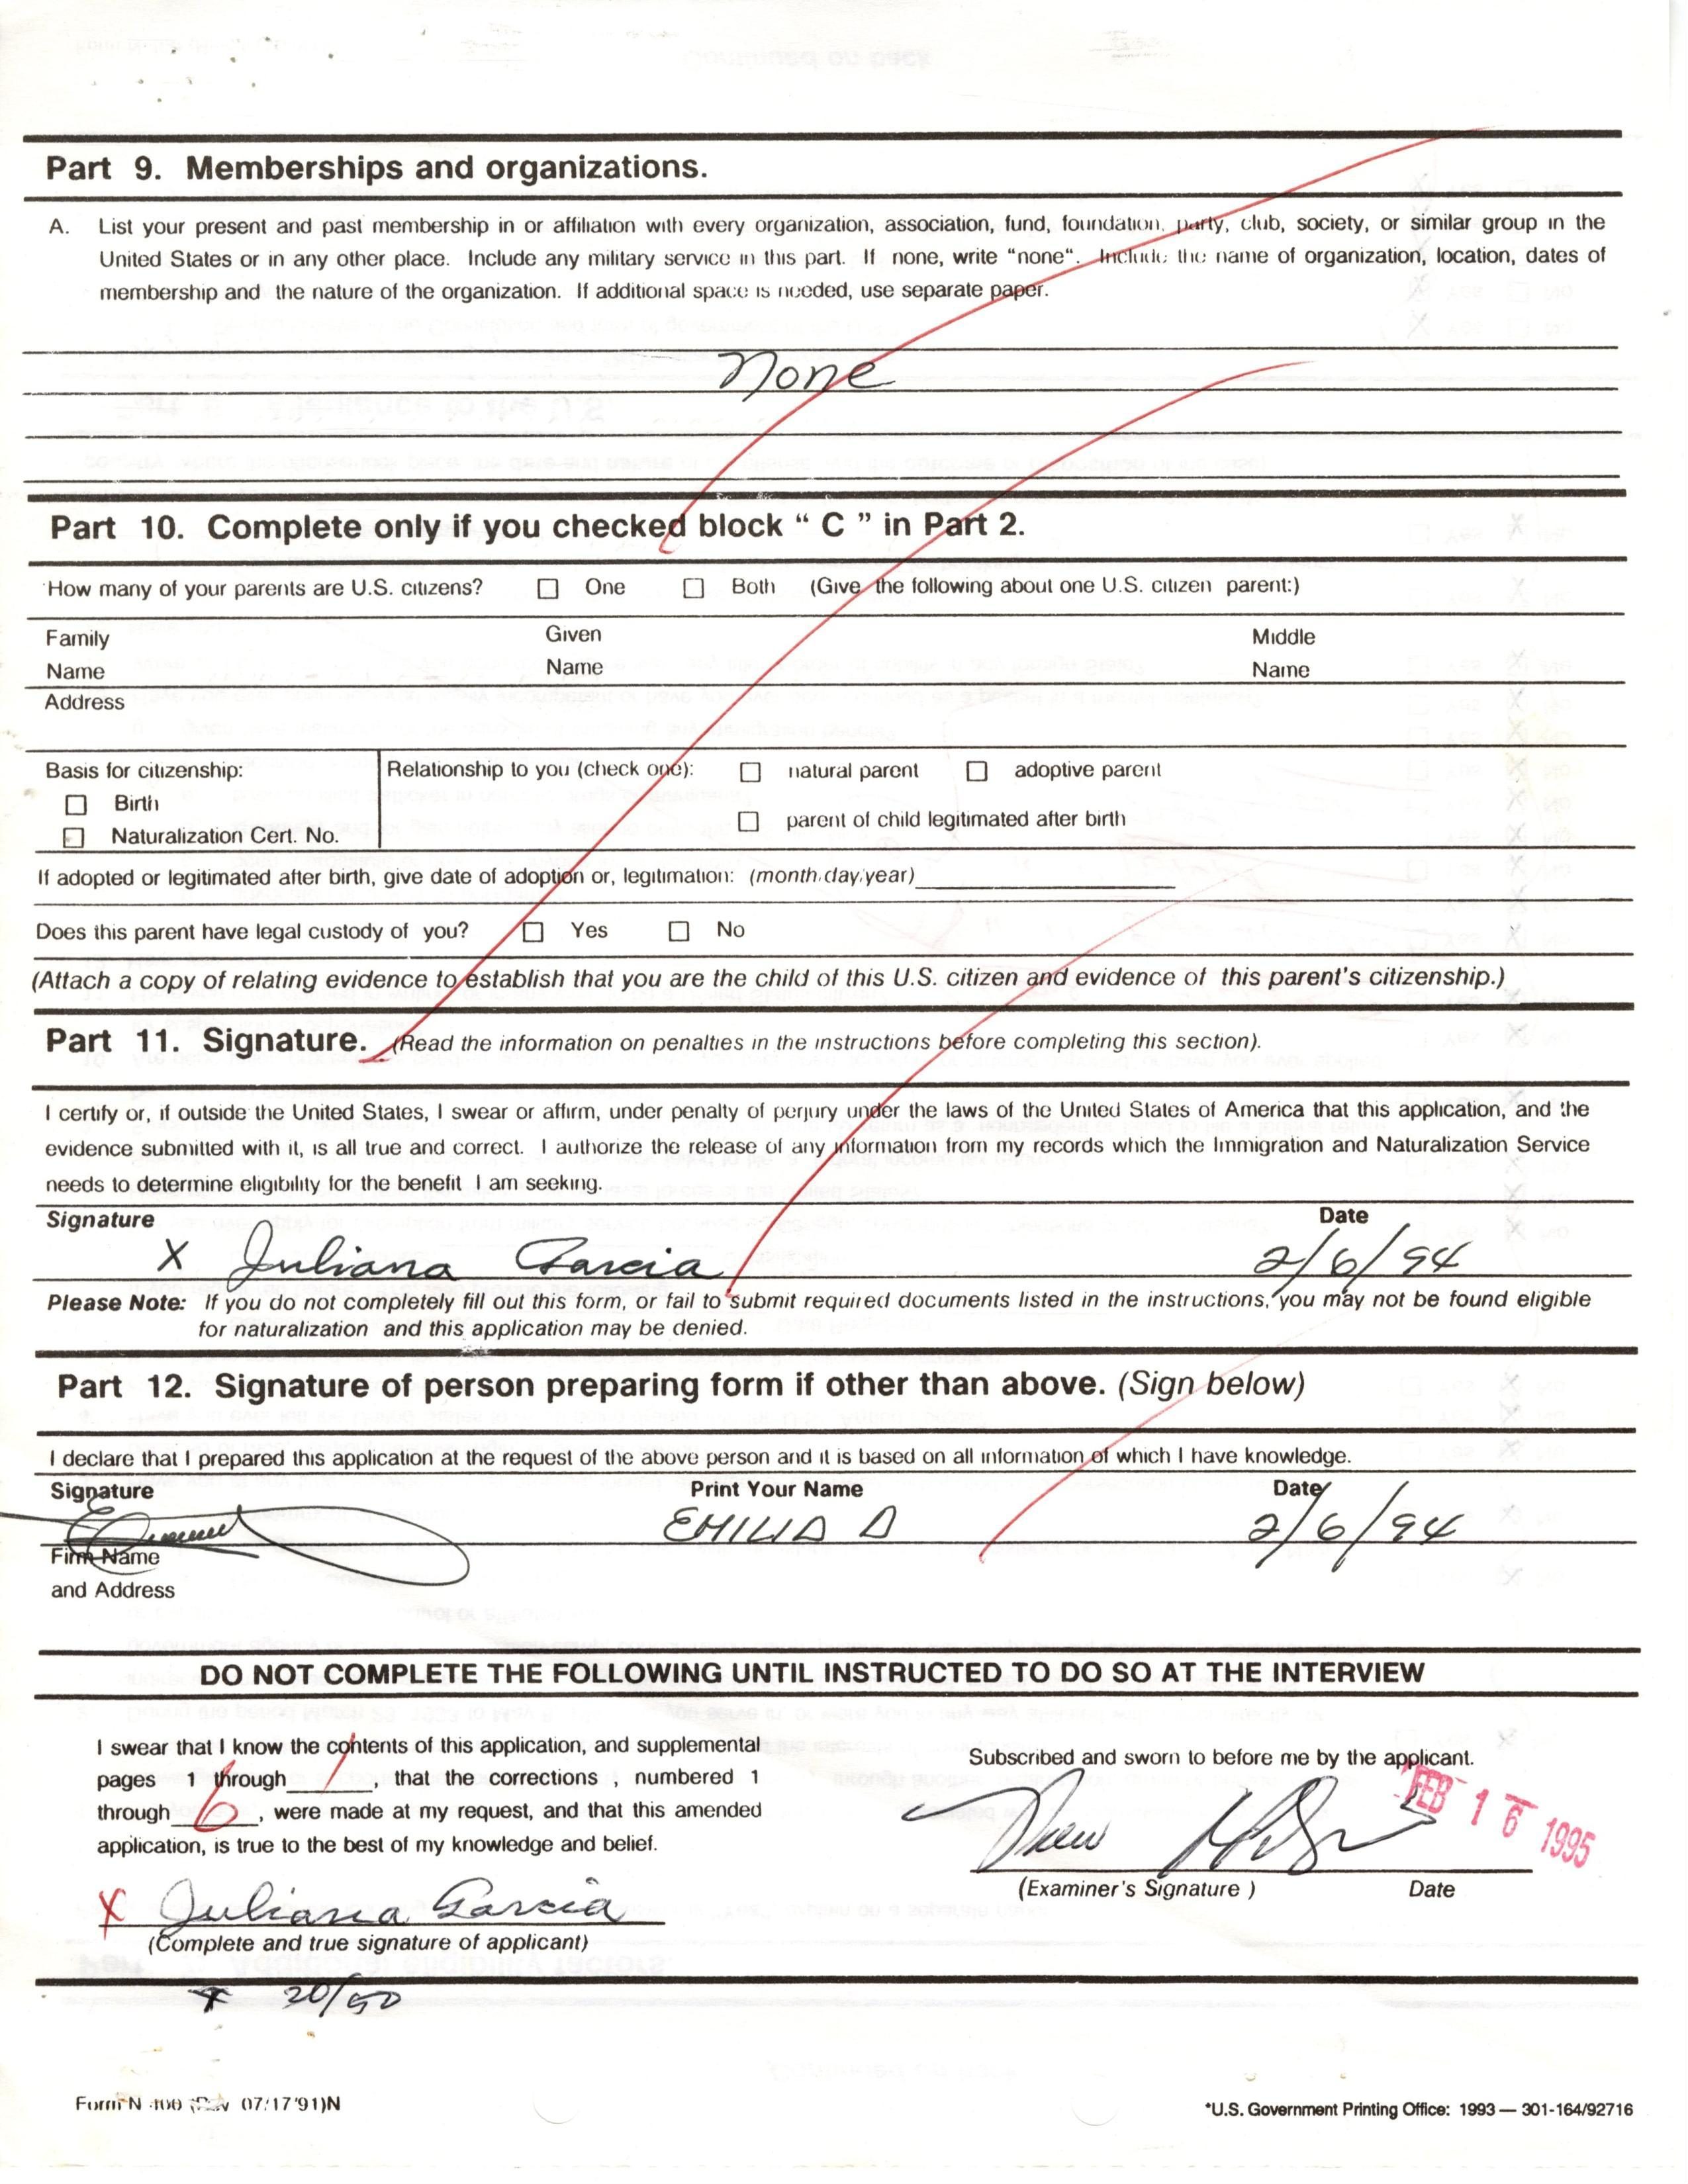 Part 9. Memberships and organizations.
A. List your present and past membership in or affiliation with every organization, association, fund, foundation, party, club, society, or similar group in the
United States or in any other place. Include any military service in this part. If none, write "none". Include the name of organization, location, dates of
membership and the nature of the organization. If additional space is needed, use separate paper.
None
Part 10. Complete only if you checked block " C " in Part 2.
How many of your parents are U.S. citizens? ☐ One ☐ Both (Give the following about one U.S. citizen parent:)
Family Given Middle
Name Name Name
Address
Basis for citizenship: Relationship to you (check one): ☐ natural parent ☐ adoptive parent
☐ Birth
☐ parent of child legitimated after birth
☐ Naturalization Cert. No.
If adopted or legitimated after birth, give date of adoption or, legitimation: (month/day/year)
Does this parent have legal custody of you? ☐ Yes ☐ No
(Attach a copy of relating evidence to establish that you are the child of this U.S. citizen and evidence of this parent's citizenship.)
Part 11. Signature. (Read the information on penalties in the instructions before completing this section).
I certify or, if outside the United States, I swear or affirm, under penalty of perjury under the laws of the United States of America that this application, and the
evidence submitted with it, is all true and correct. I authorize the release of any information from my records which the Immigration and Naturalization Service
needs to determine eligibility for the benefit I am seeking.
Signature Date
X Juliana Garcia 2/6/94
Please Note: If you do not completely fill out this form, or fail to submit required documents listed in the instructions, you may not be found eligible
for naturalization and this application may be denied.
Part 12. Signature of person preparing form if other than above. (Sign below)
I declare that I prepared this application at the request of the above person and it is based on all information of which I have knowledge.
Signature Print Your Name Date
EMILIA D 2/6/94
Firm Name
and Address
DO NOT COMPLETE THE FOLLOWING UNTIL INSTRUCTED TO DO SO AT THE INTERVIEW
I swear that I know the contents of this application, and supplemental
pages 1 through 1, that the corrections , numbered 1
through 6, were made at my request, and that this amended
application, is true to the best of my knowledge and belief.
X Juliana Garcia
(Complete and true signature of applicant)
Subscribed and sworn to before me by the applicant.
FEB 16 1995
(Examiner's Signature ) Date
20/50
Form N 400 (Rev 07/17/91)N
*U.S. Government Printing Office: 1993 — 301-164/92716